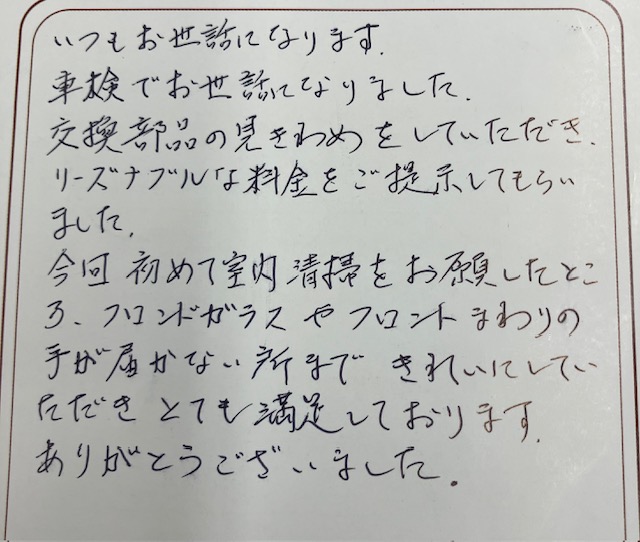 いつもお世話になります.
車検でお世話になりました.
交換部品の見きわめをしていただき.
リーズナブルな料金をご提示してもらい
ました.
今回 初めて室内清掃をお願したとこ
ろ、フロンドガラスやフロントまわりの
手が届かない所まで きれいにしてい
ただき とても満足しております.
ありがとうございました.